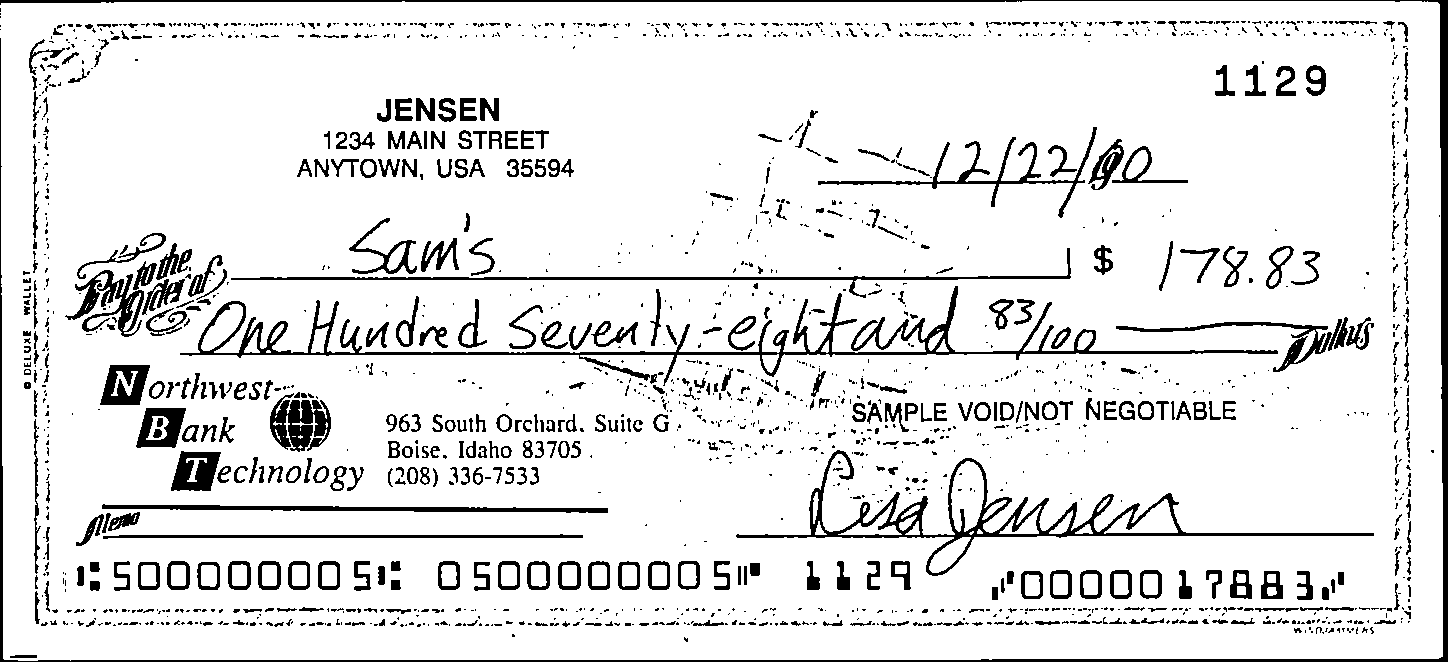 1129
JENSEN
1234 MAIN STREET
ANYTOWN, USA 35594
12/22/90
Pay to the Order of Sam's $ 178.83
One Hundred Seventy-eight and 83/100 Dollars
Northwest
Bank
Technology
963 South Orchard, Suite G
Boise, Idaho 83705
(208) 336-7533
SAMPLE VOID/NOT NEGOTIABLE
Memo
Lisa Jensen
⑆500000005⑆ 050000005⑈ 1129 ⑇0000017883⑇
© DELUXE WALLET